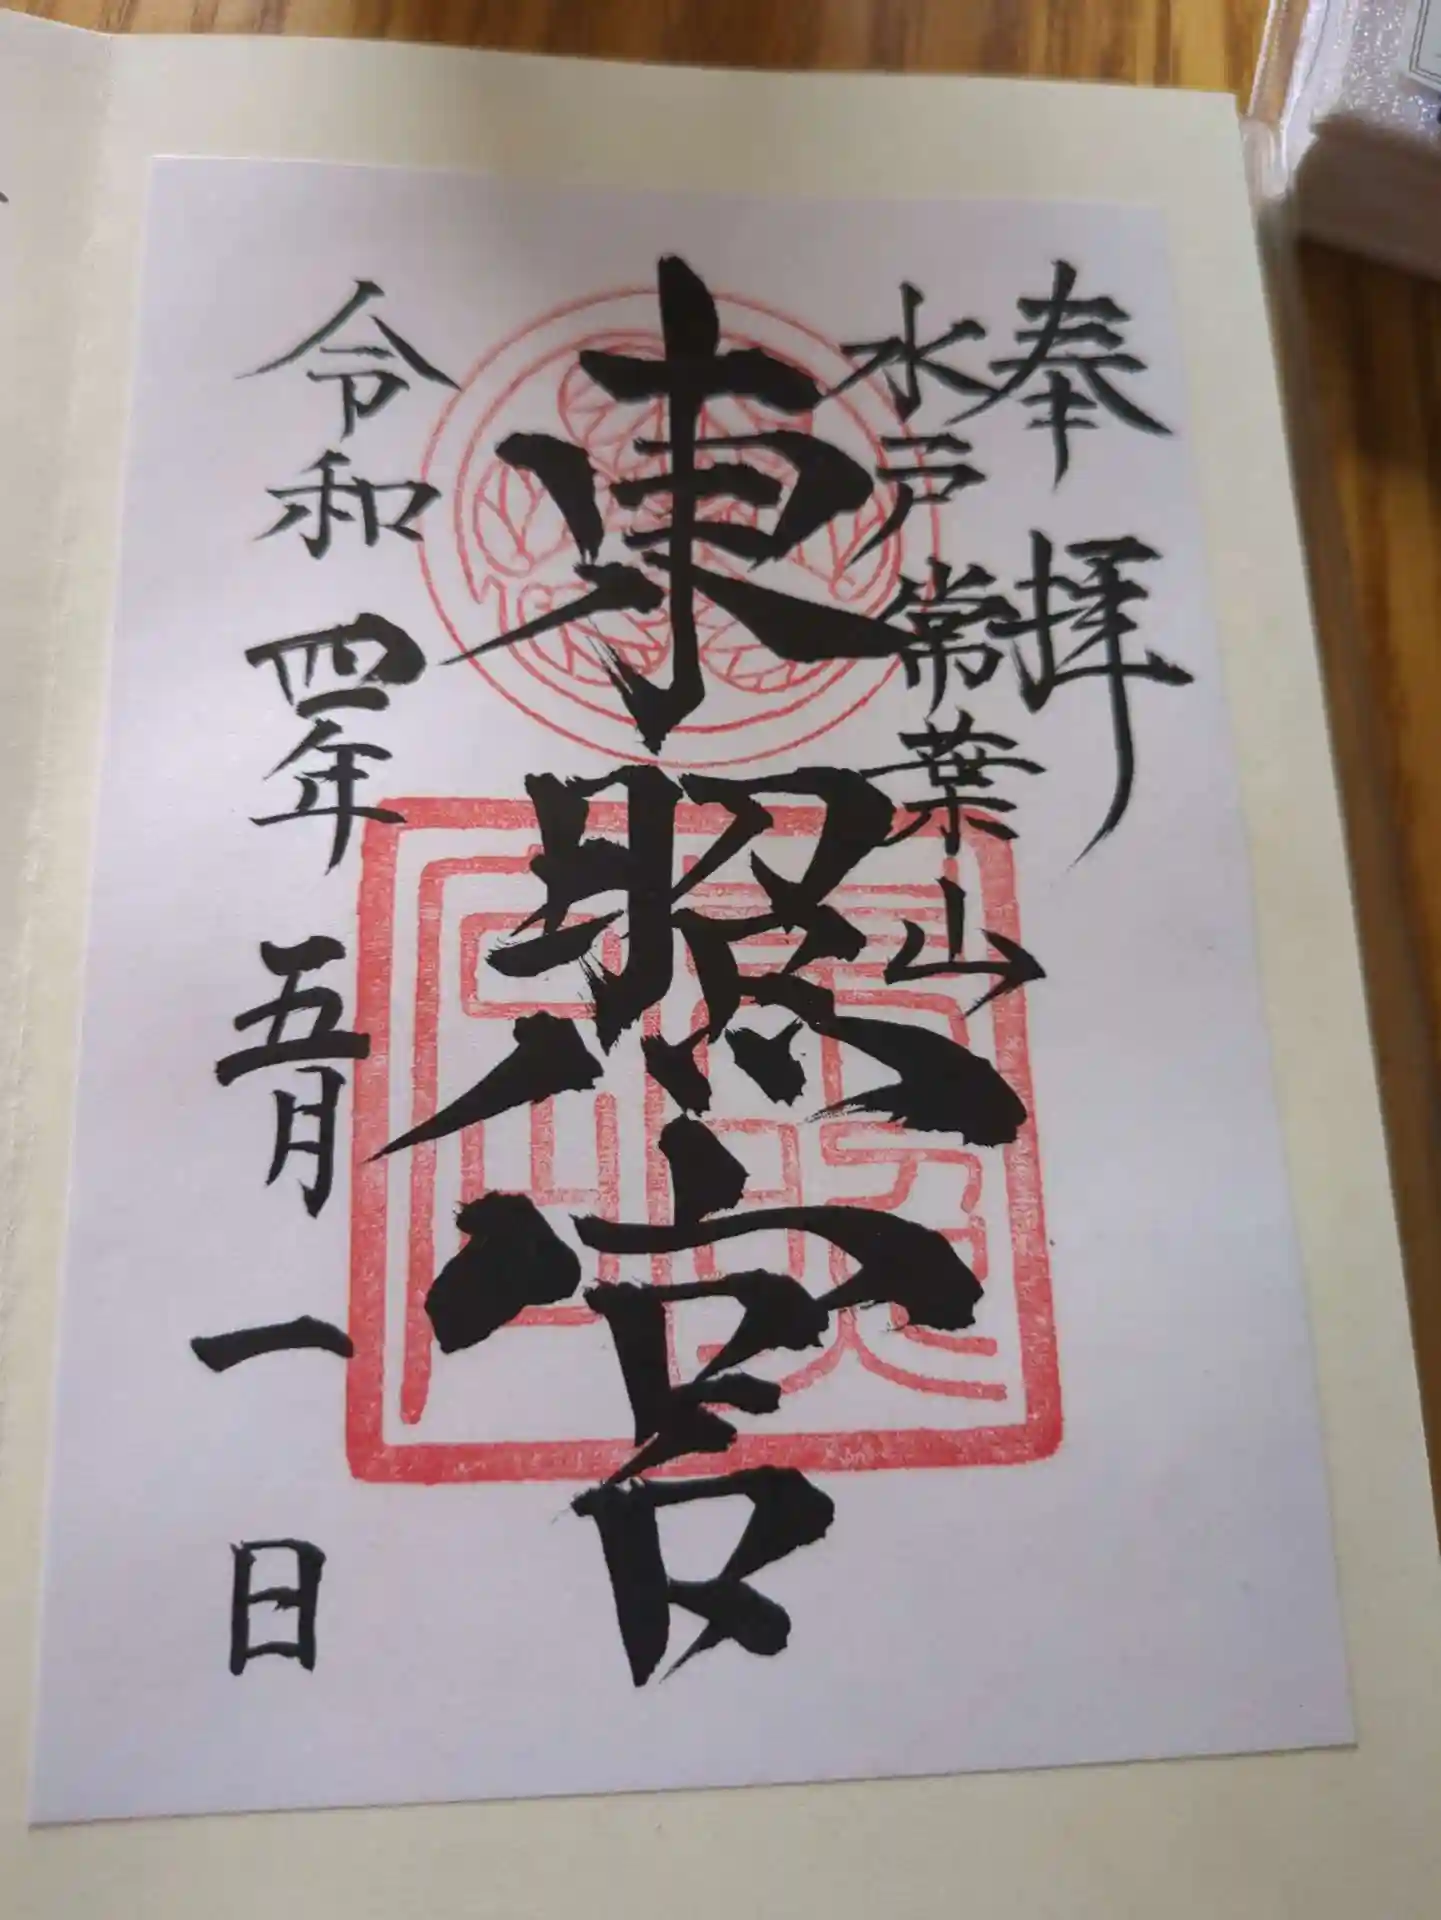 奉拝
水戸常葉山
東照宮
令和四年五月一日